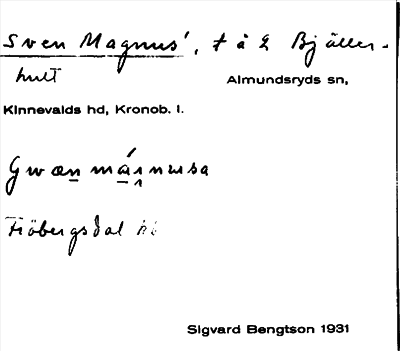 Sven Magnus', t å L Bjäller-
hult Almundsryds sn,
Kinnevalds hd, Kronob. l.
Fiöbergsdal
Sigvard Bengtson 1931